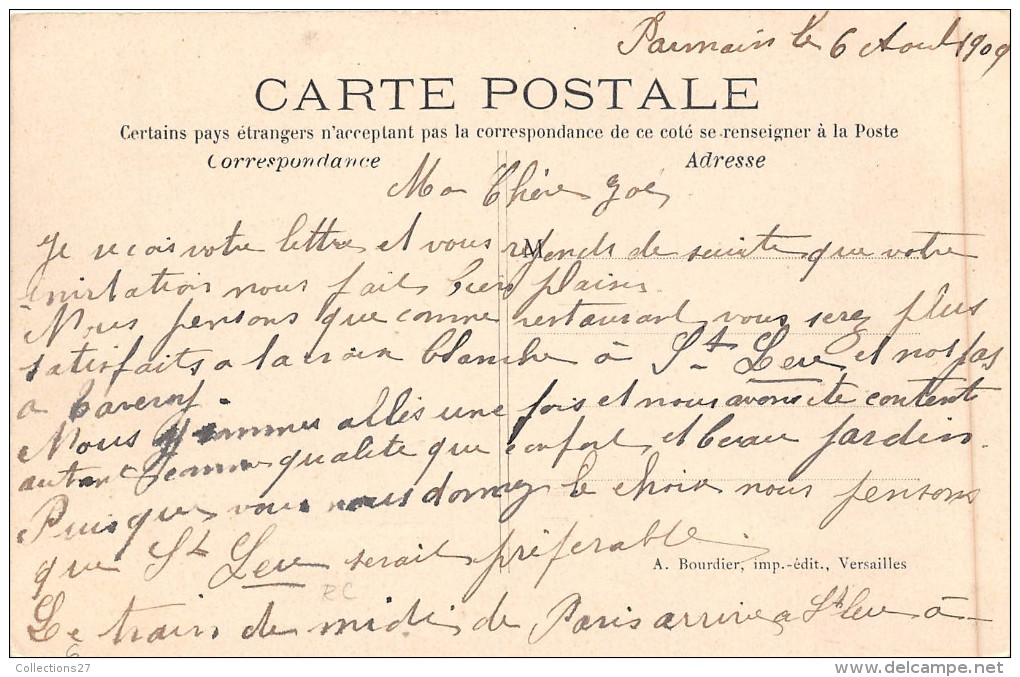 Parmain le 6 Aout 1909
CARTE POSTALE
Certains pays étrangers n'acceptant pas la correspondance de ce coté se renseigner à la Poste
Correspondance
Adresse
Ma Chère Zoé
M
Je recois votre lettre et vous reponds de suite que votre
invitation nous fait bien plaisir
Nous pensons que comme restaurant vous serez plus
satisfaits a la croix blanche à St Leu et non pas
a Taverny.
Nous y sommes allés une fois et nous avons été contents
autant comme qualite que confort et beau jardin.
Puisque vous nous donnez le choix nous pensons
que St Leu serait préférable
A. Bourdier, imp.-édit., Versailles
RC
Le train de midi de Paris arrive a St Leu à
6
Collections27
www.delcampe.net